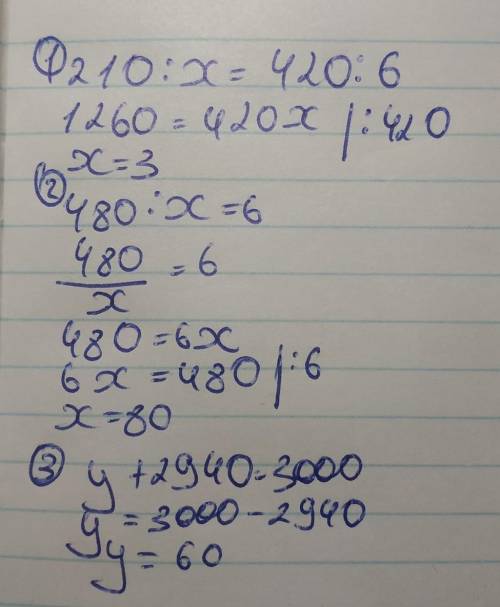 ① 210:x = 420:6
1260 = 420x |:420
x=3
② 480:x=6
480/x = 6
480=6x
6x=480 |:6
x=80
③ y+2940=3000
y=3000-2940
y=60